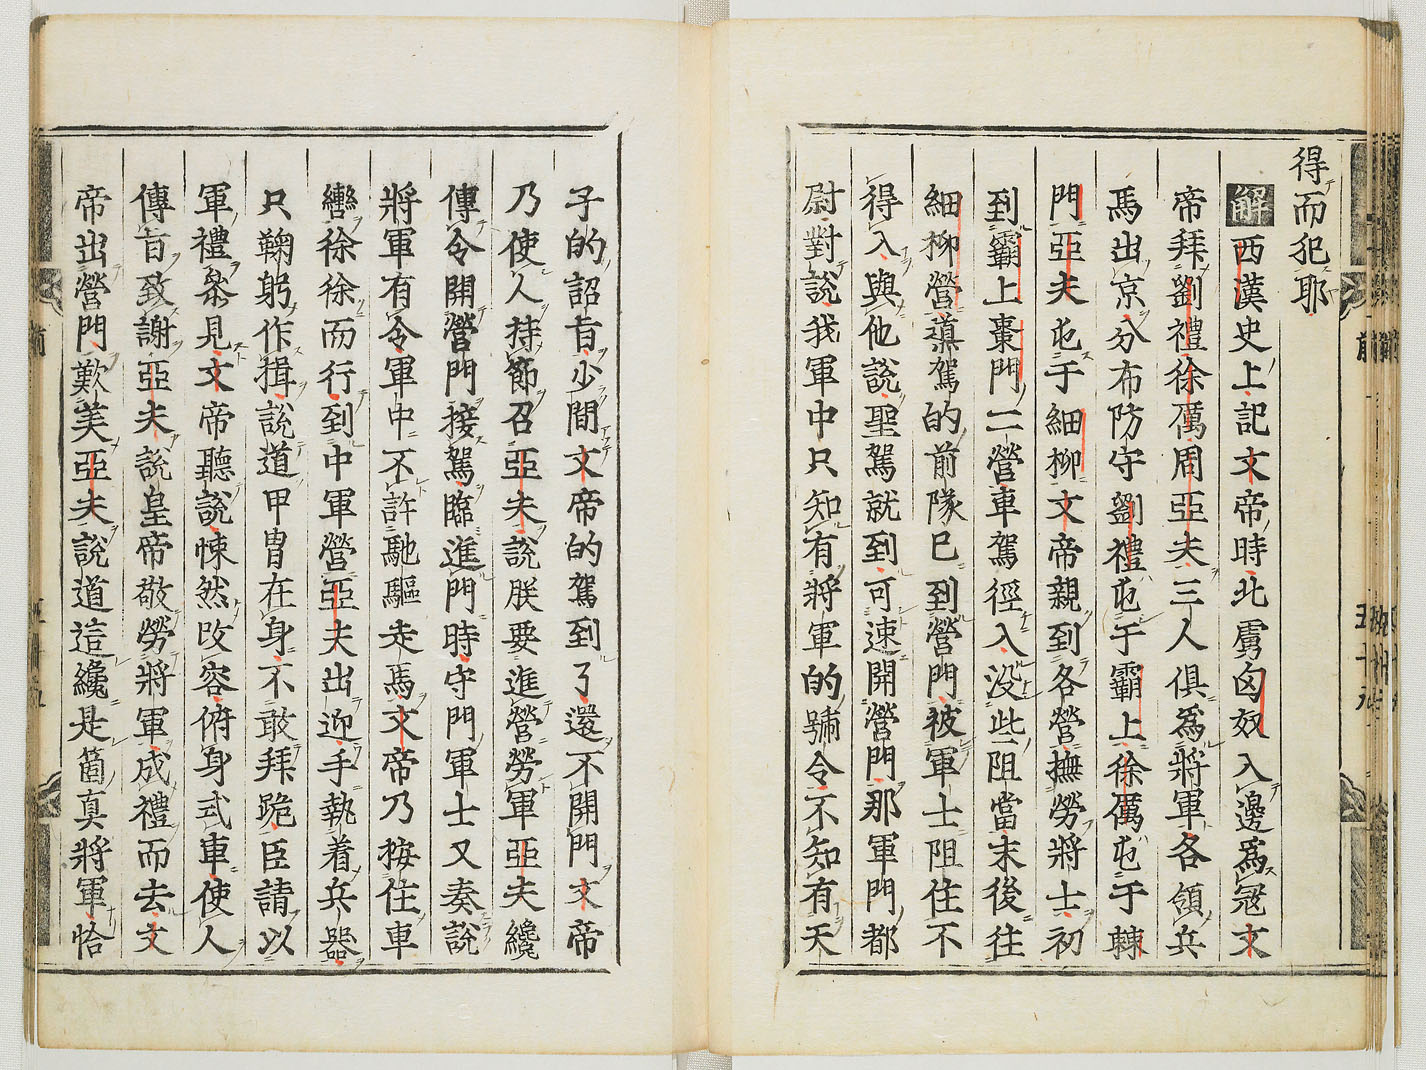 得而犯耶
解西漢史上記文帝時北虜匈奴入邊爲冦文
帝拜劉禮徐厲周亞夫三人俱爲將軍各領兵
馬出京分布防守劉禮屯于霸上徐厲屯于棘
門亞夫屯于細柳文帝親到各營撫勞將士初
到霸上棗門二營車駕徑入没些阻當末後往
細柳營導駕的前隊已到營門被軍士阻住不
得入與他説聖駕就到可速開營門那軍門都
尉對説我軍中只知有將軍的號令不知有天
子的詔旨少間文帝的駕到了還不開門文帝
乃使人持節召亞夫説朕要進營勞軍亞夫纔
傳令開營門接駕臨進門時守門軍士又奏説
將軍有令軍中不許馳驅走馬文帝乃按住車
轡徐徐而行到中軍營亞夫出迎手執着兵器
只鞠躬作揖説道甲胄在身不敢拜跪臣請以
軍禮叅見文帝聽説悚然改容俯身式車使人
傳旨致謝亞夫説皇帝敬勞將軍成禮而去文
帝出營門歎美亞夫説道這纔是箇真將軍恰